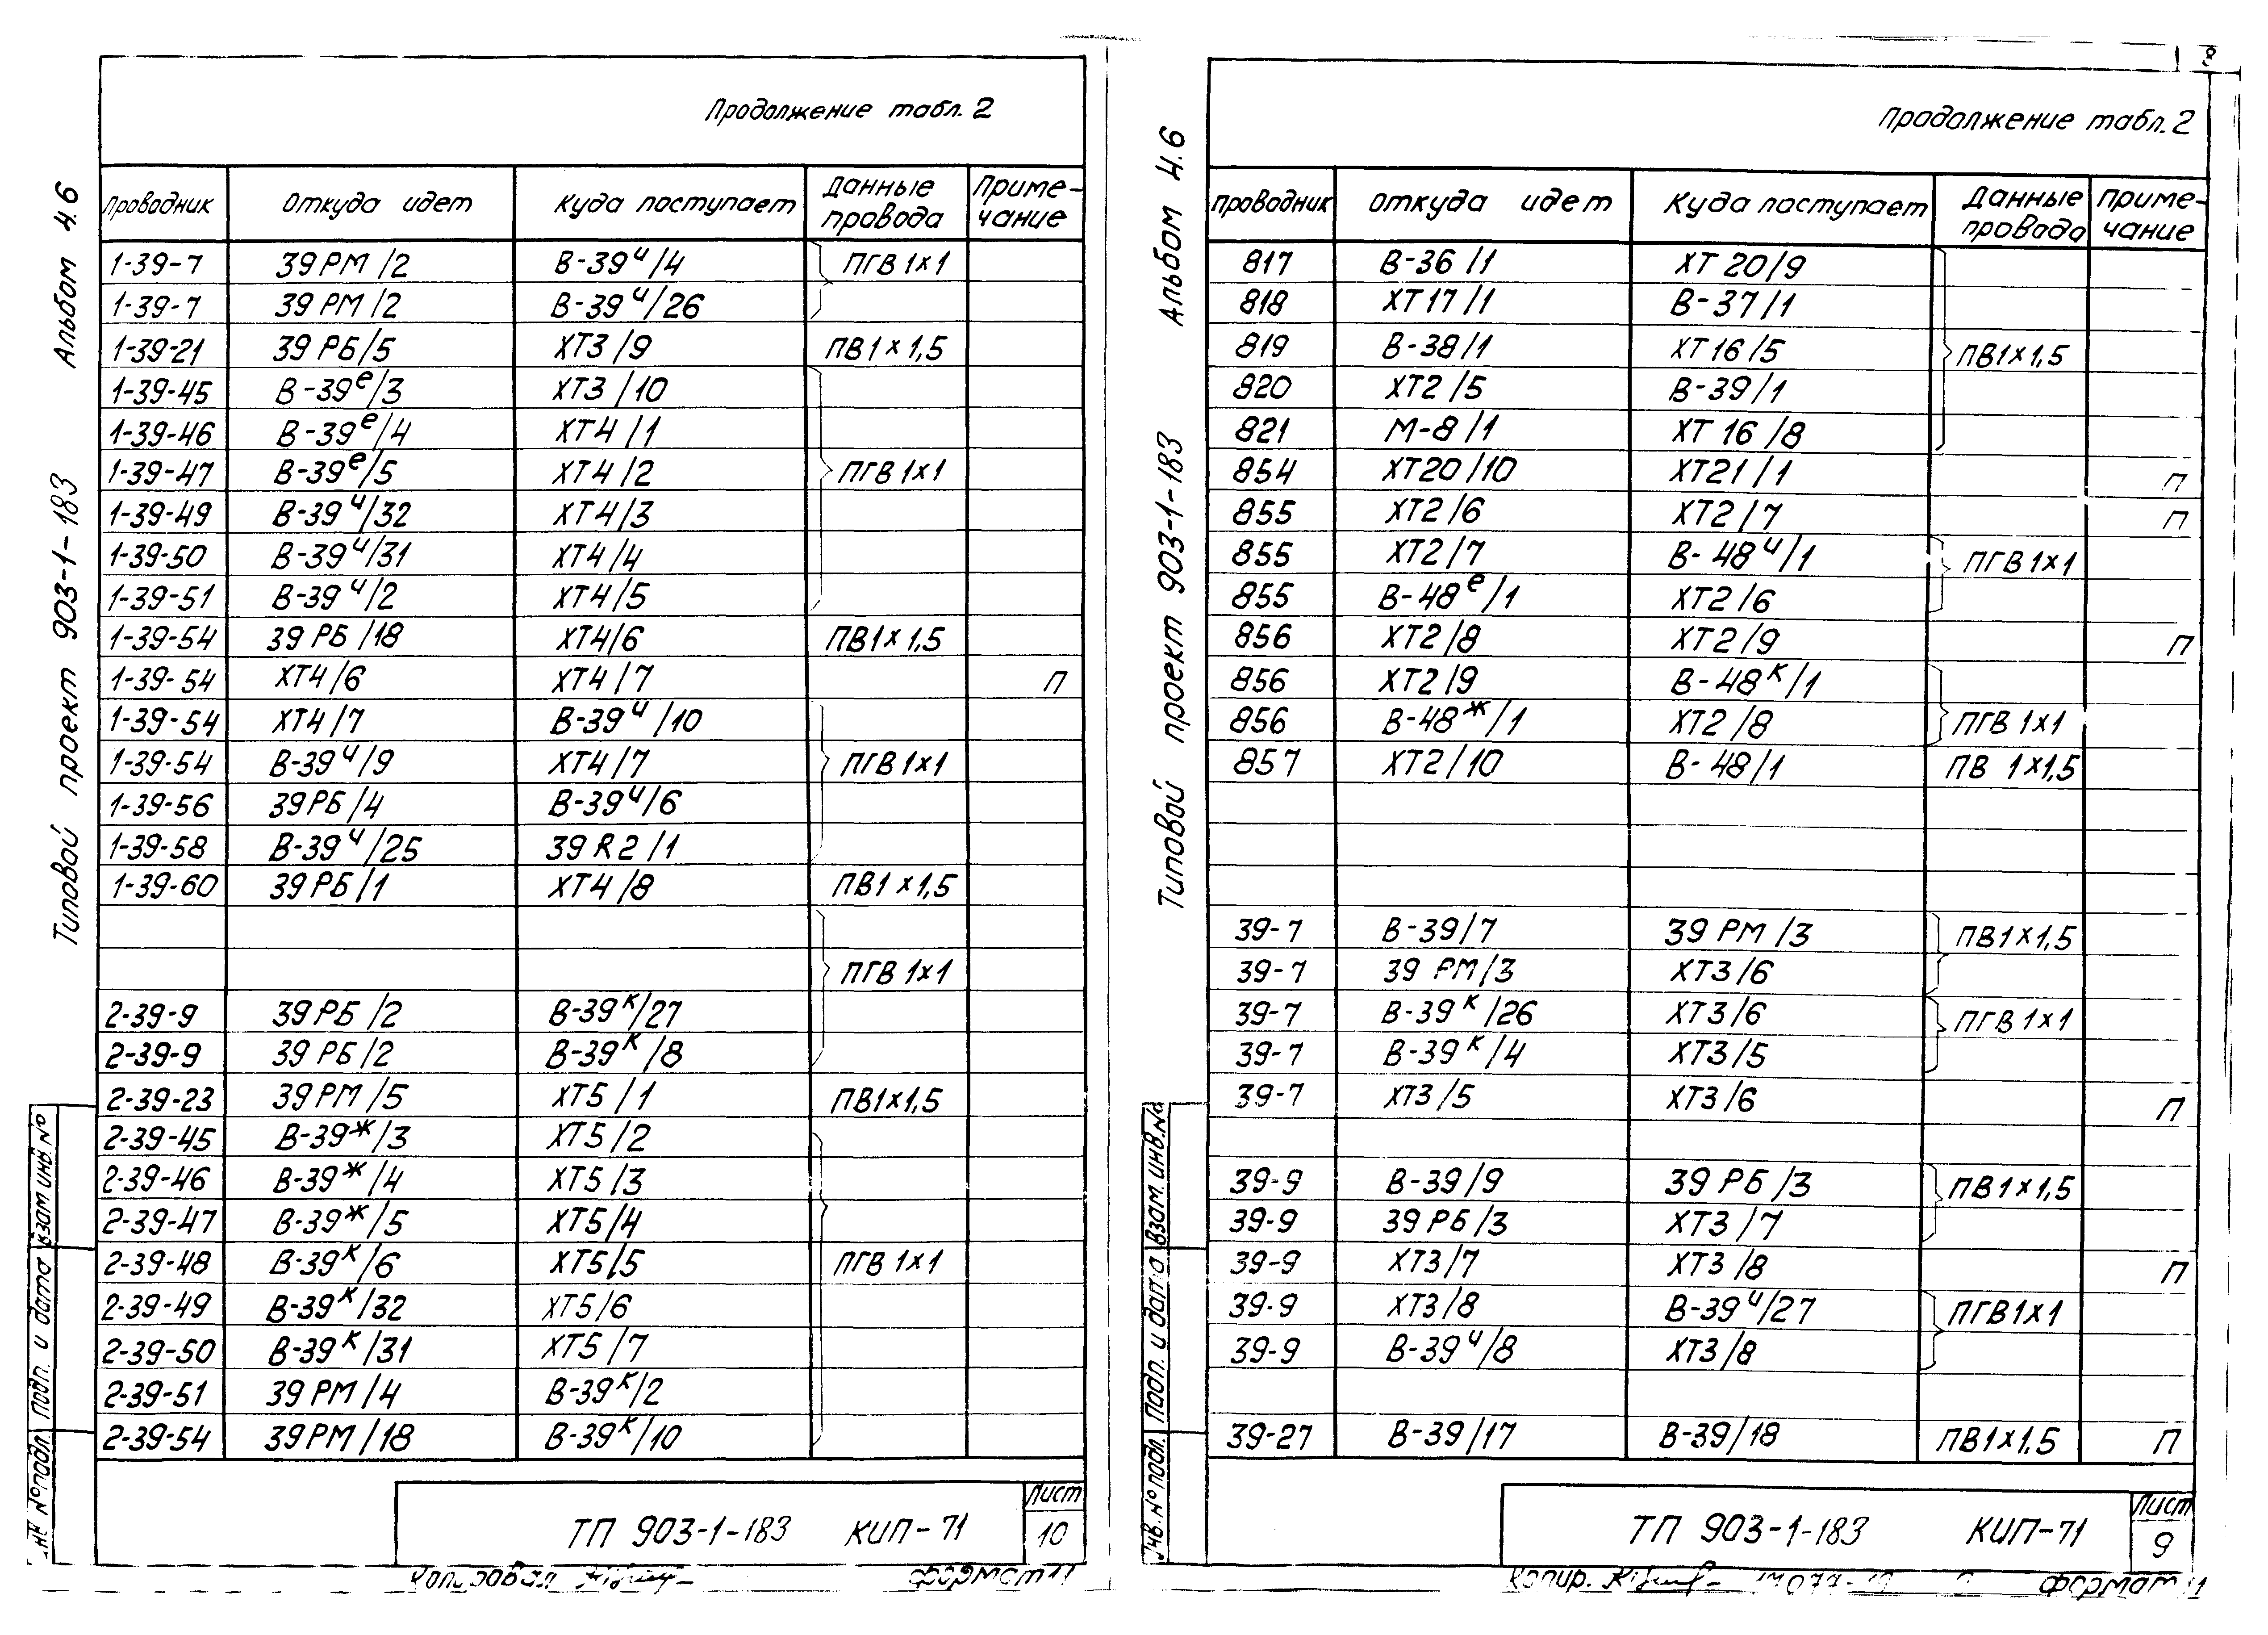 Продолжение табл. 2
Альбом 4.6
Типовой проект 903-1-183
Проводник Откуда идет Куда поступает Данные провода Приме-чание
1-39-7 39РМ/2 В-39ч/4 ПГВ 1х1
1-39-7 39РМ/2 В-39ч/26
1-39-21 39РБ/5 ХТ3/9 ПВ1х1,5
1-39-45 В-39е/3 ХТ3/10
1-39-46 В-39е/4 ХТ4/1
1-39-47 В-39е/5 ХТ4/2 ПГВ 1х1
1-39-49 В-39ч/32 ХТ4/3
1-39-50 В-39ч/31 ХТ4/4
1-39-51 В-39ч/2 ХТ4/5
1-39-54 39РБ/18 ХТ4/6 ПВ1х1,5
1-39-54 ХТ4/6 ХТ4/7 П
1-39-54 ХТ4/7 В-39ч/10
1-39-54 В-39ч/9 ХТ4/7 ПГВ 1х1
1-39-56 39РБ/4 В-39ч/6
1-39-58 В-39ч/25 39R2/1
1-39-60 39РБ/1 ХТ4/8 ПВ1х1,5
ПГВ 1х1
2-39-9 39РБ/2 В-39к/27
2-39-9 39РБ/2 В-39к/8
2-39-23 39РМ/5 ХТ5/1 ПВ1х1,5
2-39-45 В-39ж/3 ХТ5/2
2-39-46 В-39ж/4 ХТ5/3
2-39-47 В-39ж/5 ХТ5/4
2-39-48 В-39к/6 ХТ5/5 ПГВ 1х1
2-39-49 В-39к/32 ХТ5/6
2-39-50 В-39к/31 ХТ5/7
2-39-51 39РМ/4 В-39к/2
2-39-54 39РМ/18 В-39к/10
Взам. инв. №
Подп. и дата
№ подл.
ТП 903-1-183 КИП-71
Лист
10
Копировал
Формат 11
8
Продолжение табл. 2
Альбом 4.6
Типовой проект 903-1-183
Проводник Откуда идет Куда поступает Данные провода Приме-чание
817 В-36/1 ХТ20/9
818 ХТ17/1 В-37/1
819 В-38/1 ХТ16/5 ПВ1х1,5
820 ХТ2/5 В-39/1
821 М-8/1 ХТ16/8
854 ХТ20/10 ХТ21/1 П
855 ХТ2/6 ХТ2/7 П
855 ХТ2/7 В-48ч/1 ПГВ 1х1
855 В-48е/1 ХТ2/6
856 ХТ2/8 ХТ2/9 П
856 ХТ2/9 В-48к/1
856 В-48ж/1 ХТ2/8 ПГВ 1х1
857 ХТ2/10 В-48/1 ПВ 1х1,5
39-7 В-39/7 39РМ/3 ПВ1х1,5
39-7 39РМ/3 ХТ3/6
39-7 В-39к/26 ХТ3/6 ПГВ 1х1
39-7 В-39к/4 ХТ3/5
39-7 ХТ3/5 ХТ3/6 П
39-9 В-39/9 39РБ/3 ПВ1х1,5
39-9 39РБ/3 ХТ3/7
39-9 ХТ3/7 ХТ3/8 П
39-9 ХТ3/8 В-39ч/27 ПГВ1х1
39-9 В-39ч/8 ХТ3/8
39-27 В-39/17 В-39/18 ПВ1х1,5 П
Взам. инв. №
Подп. и дата
Инв. № подл.
ТП 903-1-183 КИП-71
Лист
9
Копир.
Формат 11